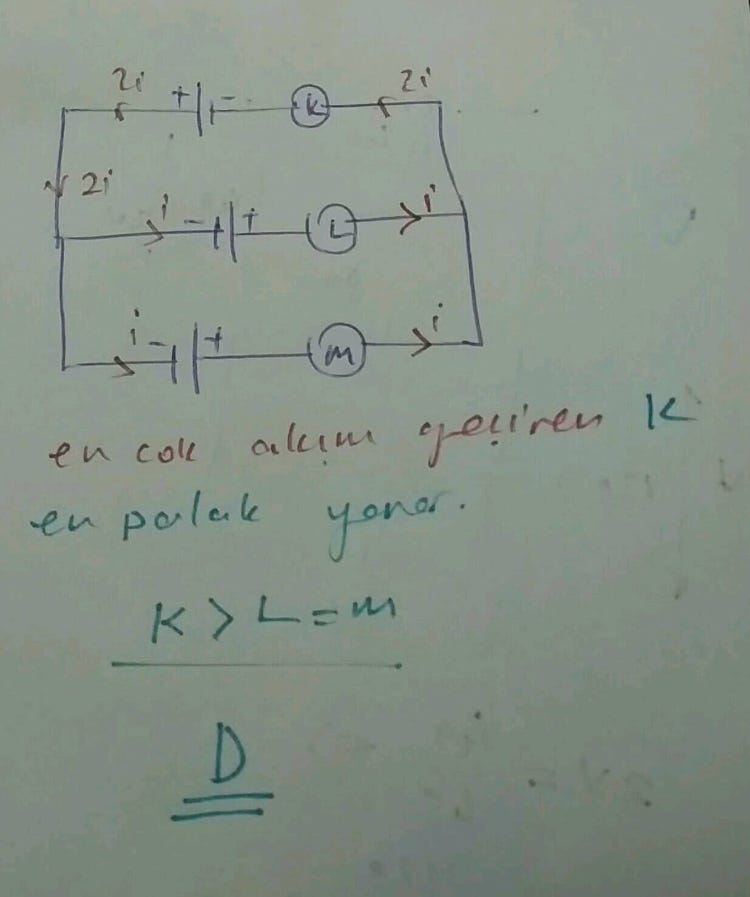 2i + - K 2i
2i
i - + L i
i - + m i
en cok akım geçiren K
en parlak yanar.
K > L = m
D